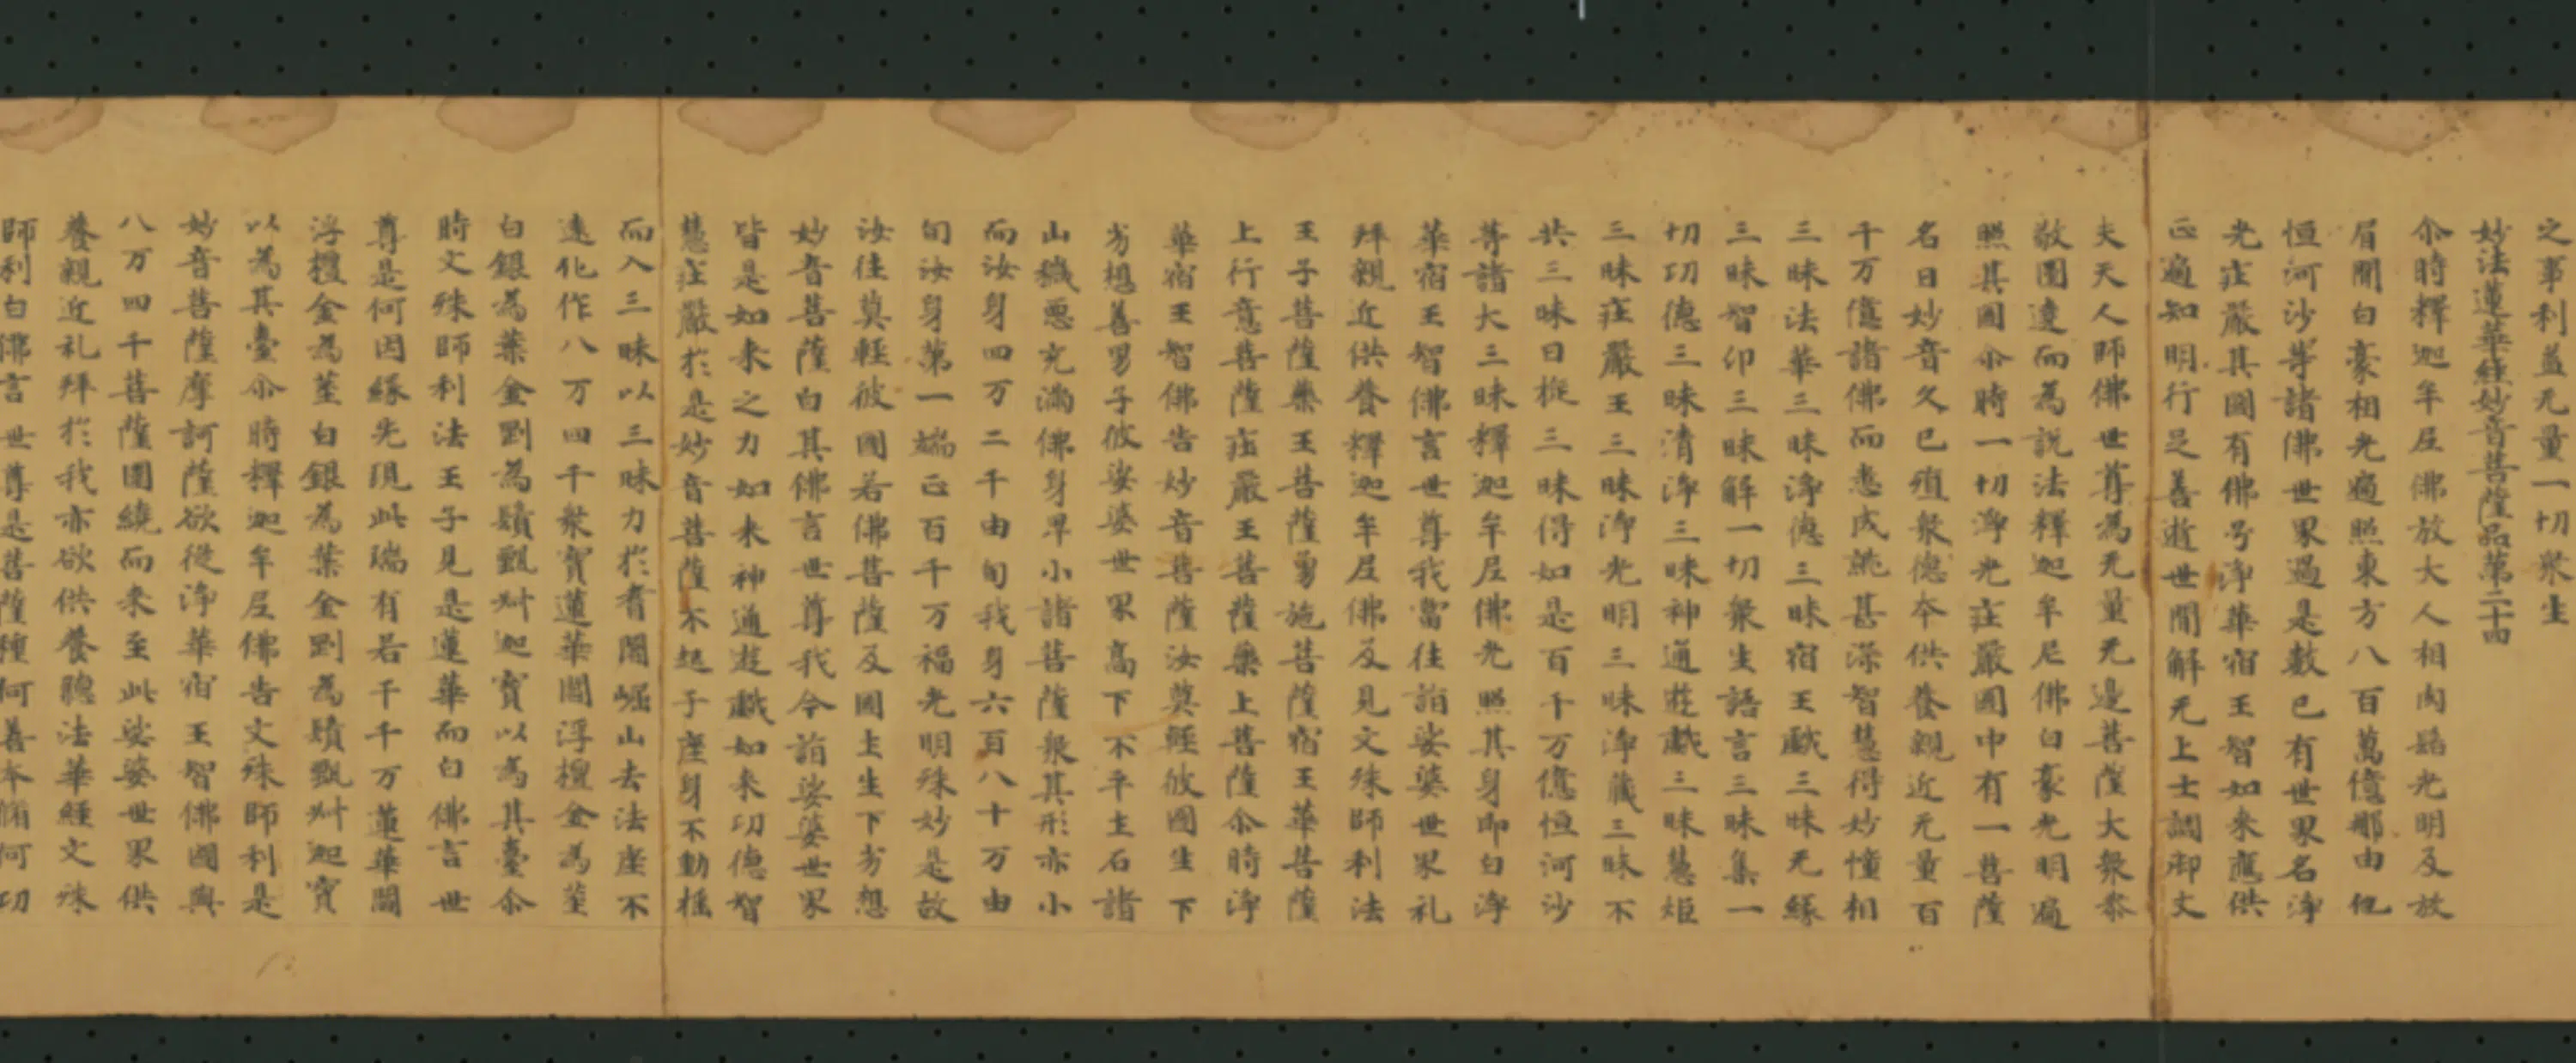 之事利益无量一切衆生
妙法蓮華經妙音菩薩品第二十四
尒時釋迦牟尼佛放大人相肉髻光明及放
眉間白豪相光遍照東方八百萬億那由他
恒河沙等諸佛世界過是數已有世界名淨
光庄嚴其國有佛号淨華宿王智如来應供
正遍知明行足善逝世間解无上士調御丈
夫天人師佛世尊為无量无邊菩薩大衆恭
敬圍遶而為說法釋迦牟尼佛白豪光明遍
照其國尒時一切淨光庄嚴國中有一菩薩
名曰妙音久已殖衆德本供養親近无量百
千万億諸佛而悉成就甚深智慧得妙憧相
三昧法華三昧淨德三昧宿王戲三昧无緣
三昧智印三昧解一切衆生語言三昧集一
切功德三昧清淨三昧神通遊戲三昧慧炬
三昧庄嚴王三昧淨光明三昧淨藏三昧不
共三昧日旋三昧得如是百千万億恒河沙
等諸大三昧釋迦牟尼佛光照其身即白淨
華宿王智佛言世尊我當往詣娑婆世界礼
拜親近供養釋迦牟尼佛及見文殊師利法
王子菩薩藥王菩薩勇施菩薩宿王華菩薩
上行意菩薩庄嚴王菩薩藥上菩薩尒時淨
華宿王智佛告妙音菩薩汝莫輕彼國生下
劣想善男子彼娑婆世界高下不平土石諸
山穢惡充滿佛身卑小諸菩薩衆其形亦小
而汝身四万二千由旬我身六百八十万由
旬汝身第一端正百千万福光明殊妙是故
汝往莫輕彼國若佛菩薩及國土生下劣想
妙音菩薩白其佛言世尊我今詣娑婆世界
皆是如来之力如来神通遊戲如来功德智
慧庄嚴於是妙音菩薩不起于座身不動搖
而入三昧以三昧力於耆闍崛山去法座不
遠化作八万四千衆寳蓮華閻浮檀金為莖
白銀為葉金剛為鬚甄叔迦寳以為其臺尒
時文殊師利法王子見是蓮華而白佛言世
尊是何因緣先現此瑞有若干千万蓮華閻
浮檀金為莖白銀為葉金剛為鬚甄叔迦寳
以為其臺尒時釋迦牟尼佛告文殊師利是
妙音菩薩摩訶薩欲從淨華宿王智佛國與
八万四千菩薩圍繞而来至此娑婆世界供
養親近礼拜於我亦欲供養聽法華經文殊
師利白佛言世尊是菩薩種何善本脩何功